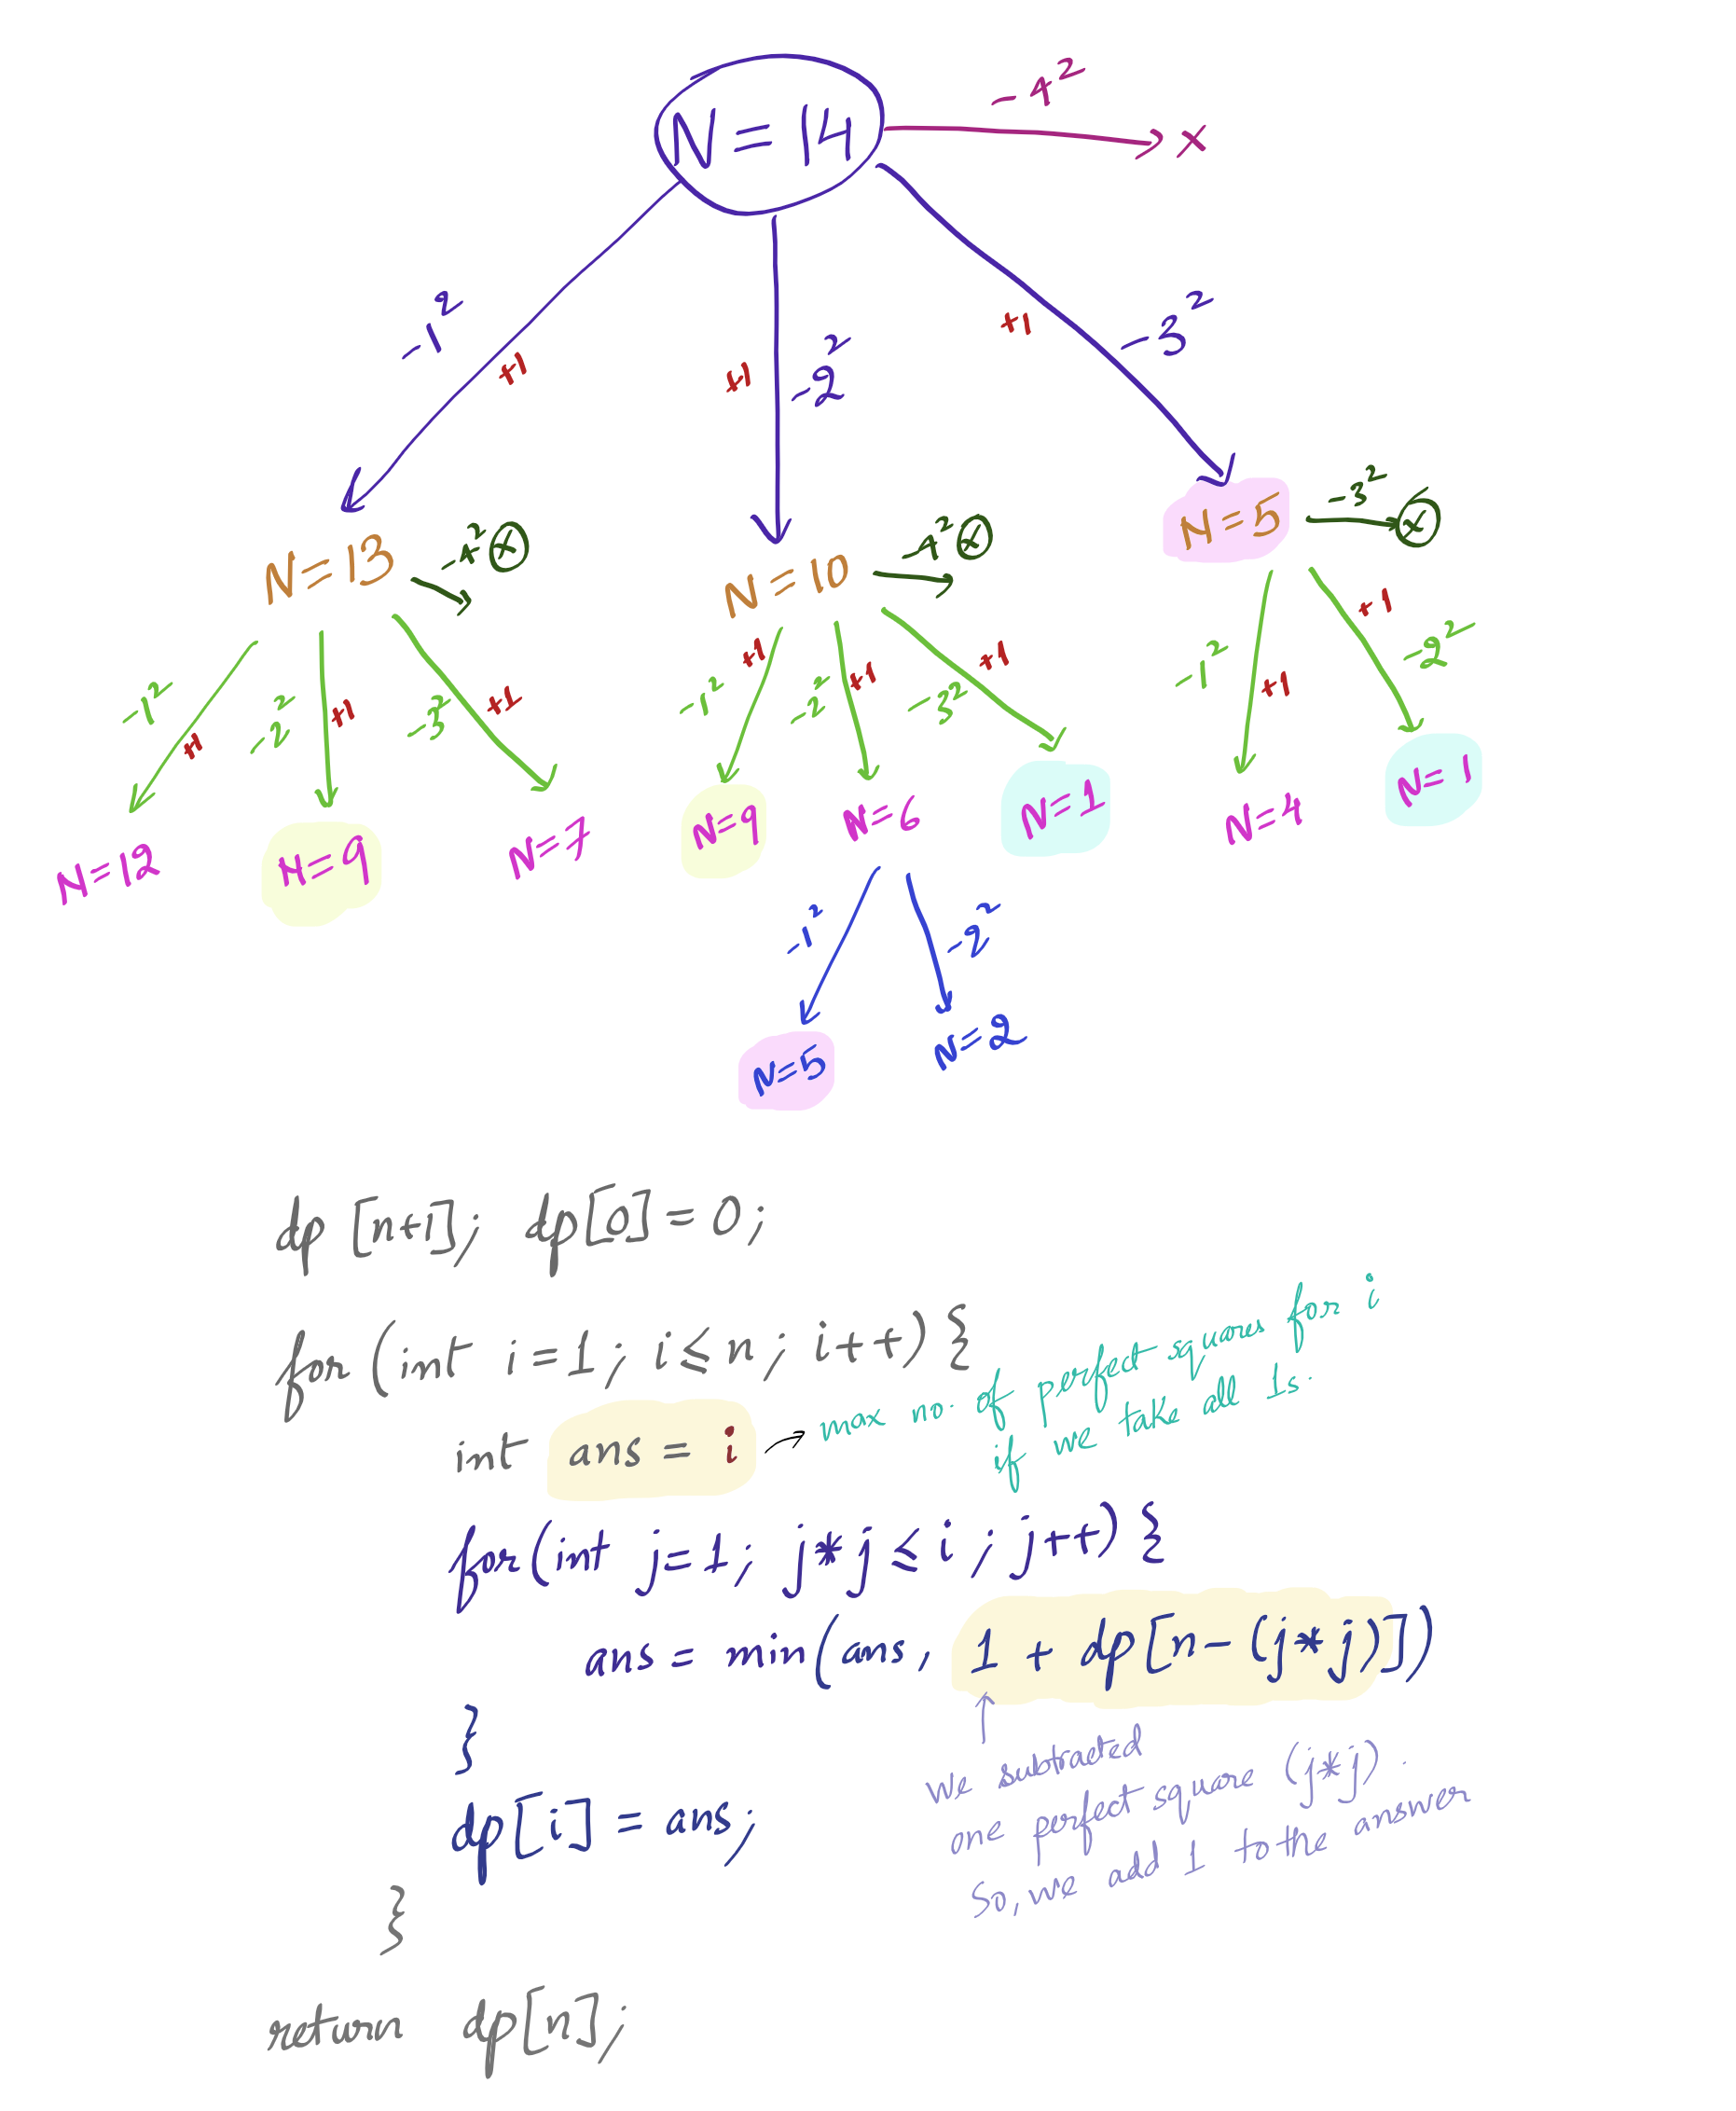 N = 14
-4² x
-1² +1
+1 -2²
+1 -3²
N=13
-4² x
N=10
-4² x
N=5
-3² x
-1² +1
-2² +1
-3² +1
-1² +1
-2² +1
-3² +1
-1² +1
+1 -2²
N=12
N=9
N=7
N=9
N=6
N=1
N=4
N=1
-1²
-2²
N=5
N=2
dp [n+1]; dp[0] = 0;
for (int i=1; i≤n; i++) {
int ans = i → max no. of perfect squares for i
if we take all 1s.
for(int j=1; j*j ≤ i; j++) {
ans = min(ans, 1 + dp[n-(j*j)])
}
we subtracted
one perfect square (j*j).
So, we add 1 to the answer
dp[i] = ans;
}
return dp[n];